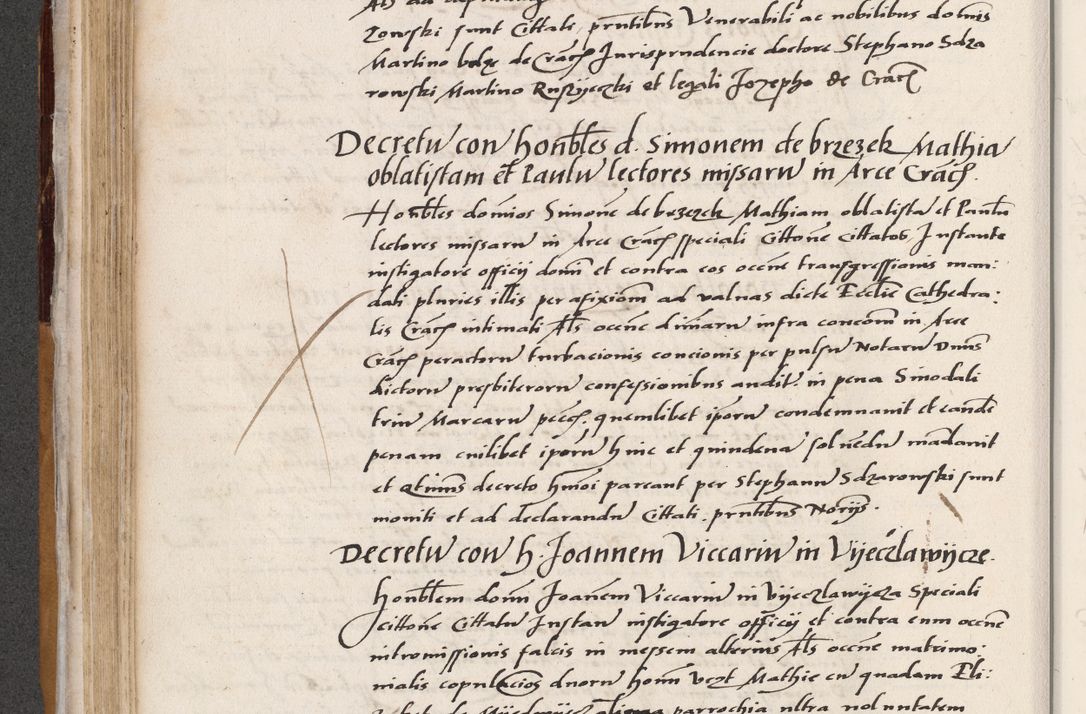 zowski sunt Cittati, prntibus Venerabili ac nobilibus domis
Martino belze de Crac Jurisprudencie doctore Stephano Sdza
rowski Martino Ruszyeczki et legali Jozepho de Crac
Decretu con honbles d. Simonem de brzezek Mathia
oblatistam et Paulu lectores missaru in Arce Crac.
Honbles domios Simone de brzezek Mathiam oblatista et Paulu
lectores missaru in Arce Crac speciali Cittone Cittatos Instante
instigatore officij domi et contra eos occne transgressionis man:
dati pluries illis per afixiom ad valuas dicte Ecclie Cathedra:
lis Crac intimati Als occne dimaru infra concom in Arce
Crac peractoru turbacionis concionis per pulsu Notaru Dnus
dictoru presbiteroru confessionibus audit. in pena Sinodali
triu Marcaru pecc. quemlibet iporu condemnauit et eande
penam cuilibet iporu hinc et quindena soluedu madauit
et qtinus decreto hmoi pareant per Stephanu Sdzarowski sunt
moniti et ad declarandu Cittati. prntibus Norijs.
Decretu con h. Joannem Viccariu in Vijeczlawijcze.
honblem domi Joanem Viccariu in Vijeczlawijcza Speciali
cittone Cittatu Instan instigatore officij et contra eum occne
intromissionis falcis in messem alterius Als occne matrimo:
nialis copulacios duoru homi vezt Mathie cu quadam Eli:
parrochia ultra noluntatem